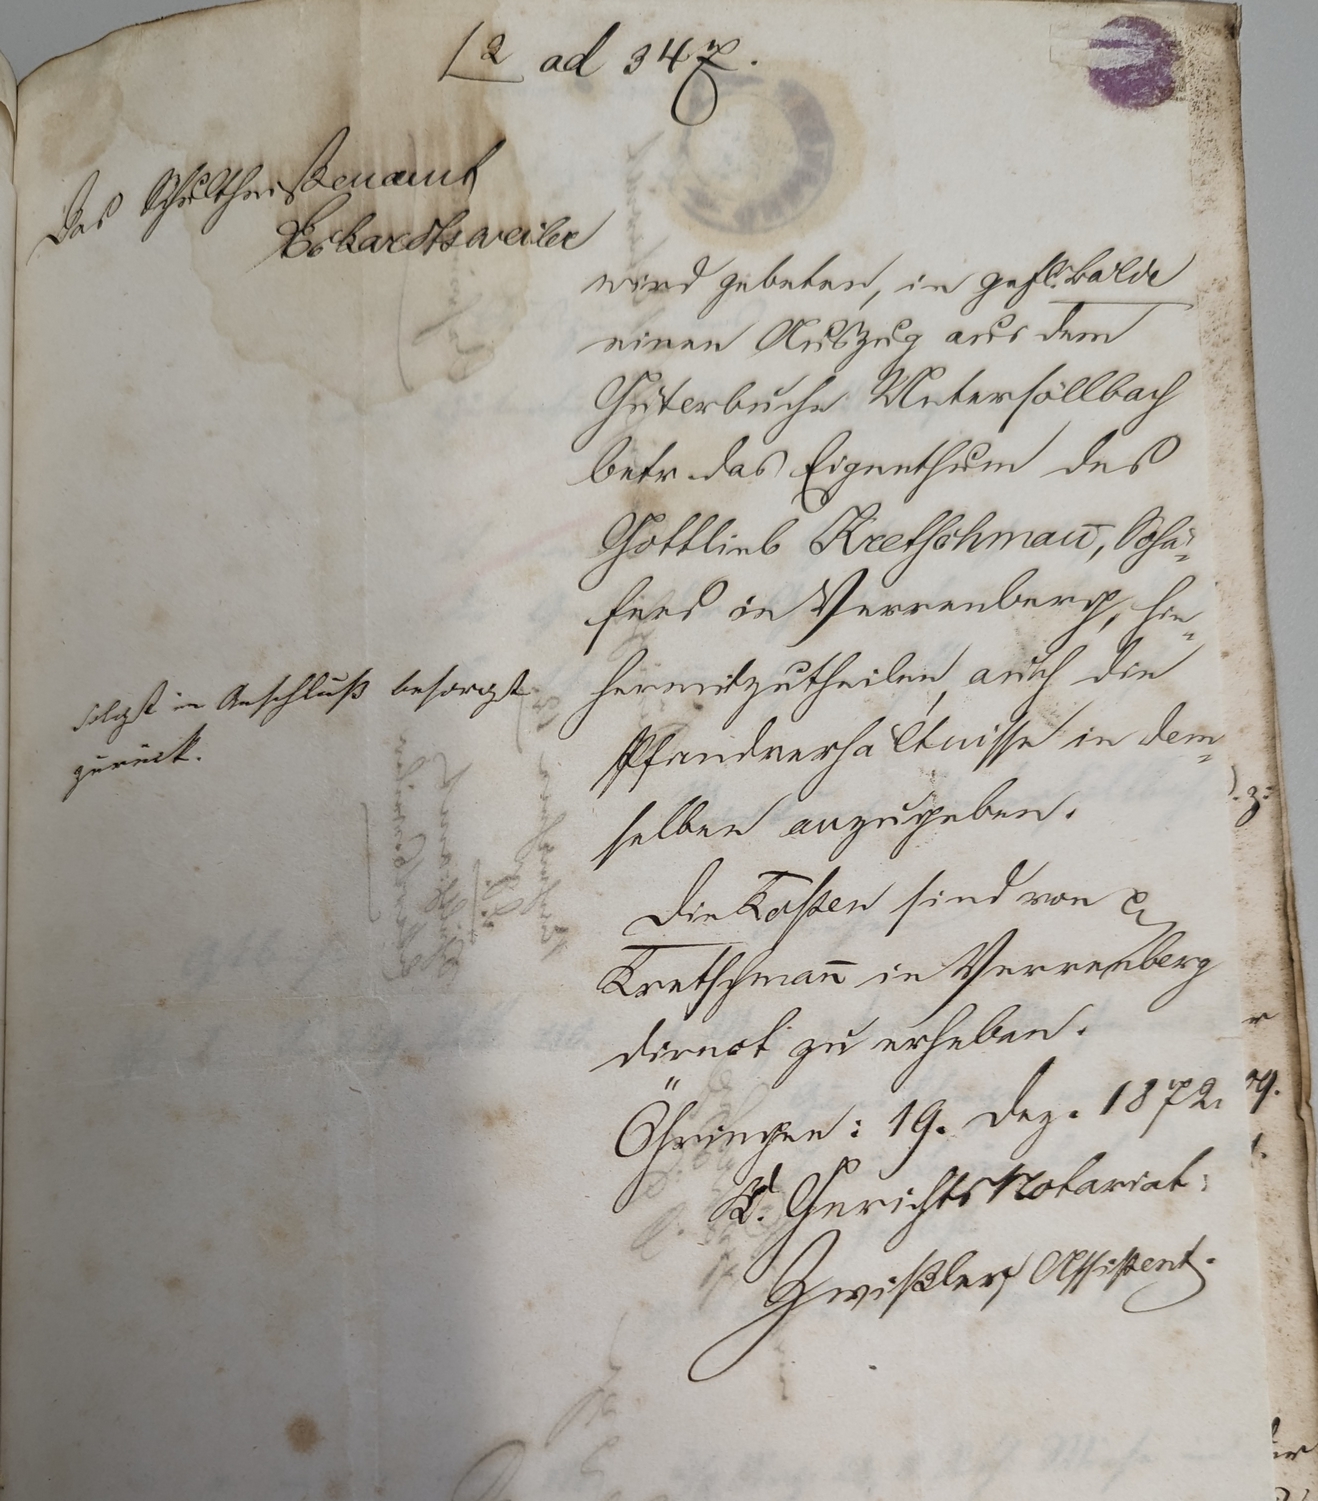 2 ad 347.
Das Schultheißenamt
Eckardtsweiler
wird gebeten, in gefl. Bälde
einen Auszug aus dem
Güterbuche Untersöllbach
betr. das Eigenthum des
Gottlieb Kretschman̄, Schä-
fers in Verrenberg, hie-
hermitzutheilen, auch die
Pfandverhältnisse in dem-
selben anzugeben.
Die Kosten sind von
Kretschman̄ in Verrenberg
direct zu erheben.
Öhringen: 19. Dez. 1872.
K. Gerichts Notariat:
Zwißler, Assistent.
folgt im Anschluß besorgt
zurück.